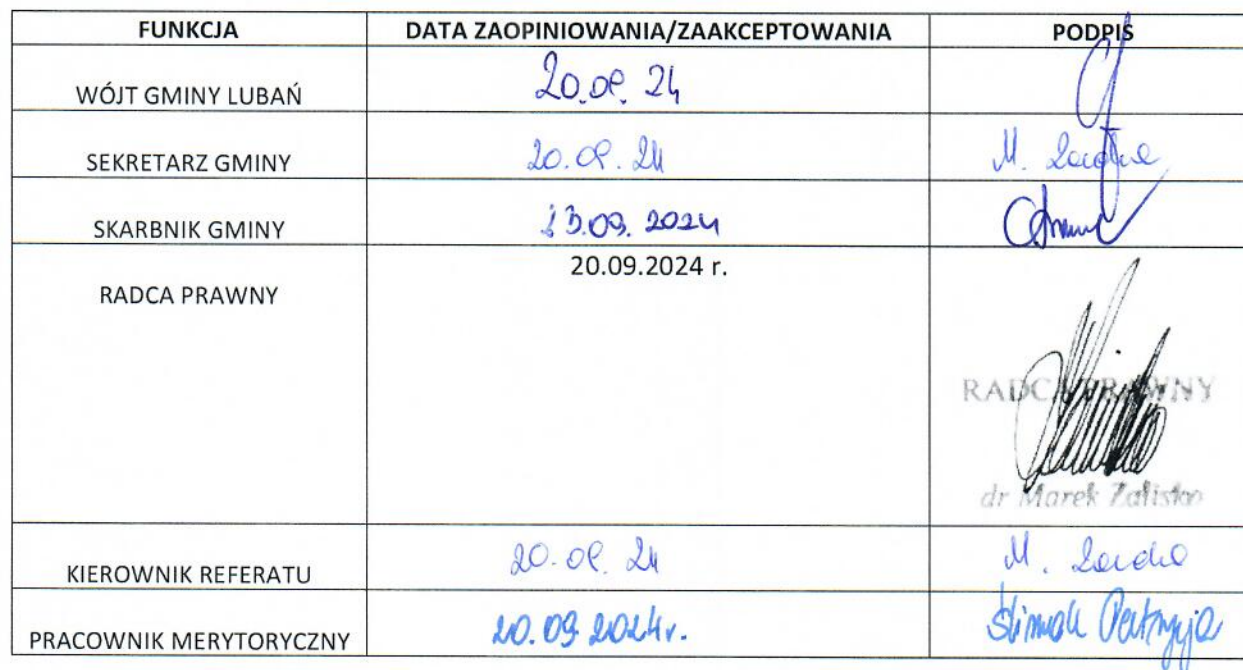 FUNKCJA DATA ZAOPINIOWANIA/ZAAKCEPTOWANIA PODPIS
WÓJT GMINY LUBAŃ 20.09.24
SEKRETARZ GMINY 20.09.24 M.
SKARBNIK GMINY 13.09.2024
20.09.2024 r.
RADCA PRAWNY
RADCA PRAWNY
dr Marek Zalisko
KIEROWNIK REFERATU 20.09.24 M.
PRACOWNIK MERYTORYCZNY 20.09.2024r. Patrycja